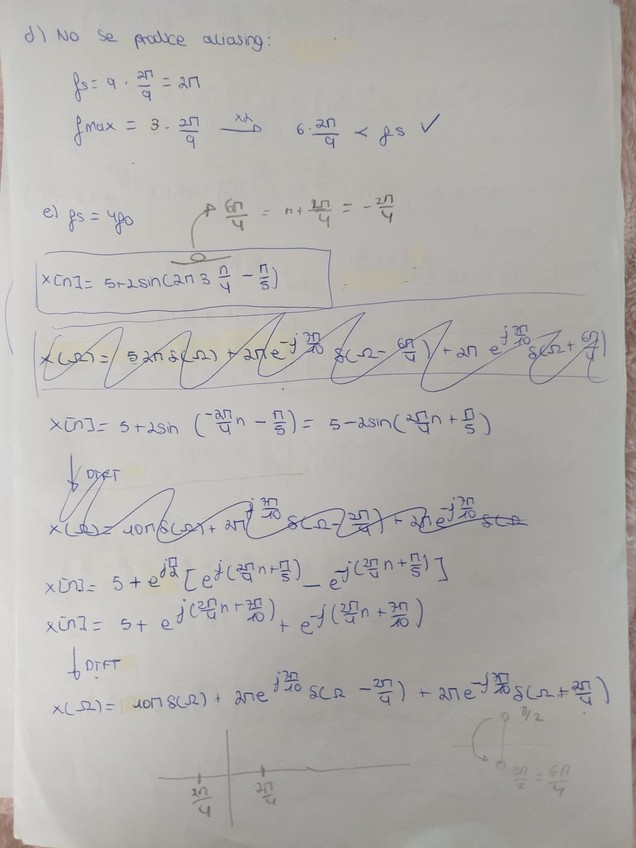 d) No se produce aliasing:
fs = 9 · 2π/9 = 2π
fmax = 3 · 2π/9 →x2 6·2π/9 < fs ✓
e) fs = 4f0
6π/4 = π + 2π/4 = -2π/4
x[n] = 5+2sin(2π3 n/4 - π/5)
x(Ω) = 52πδ(Ω) + 2πe^-j7π/10 δ(Ω - 6π/4) + 2π e^j7π/10 δ(Ω + 6π/4)
x[n] = 5+2sin (-2π/4 n - π/5) = 5-2sin(2π/4 n + π/5)
↓ DTFT
x(Ω) = 10πδ(Ω) + 2πe^j7π/10 δ(Ω - 2π/4) + 2πe^-j7π/10 δ(Ω
x[n] = 5 + e^jπ/2 [e^j(2π/4 n + π/5) - e^-j(2π/4 n + π/5)]
x[n] = 5 + e^j(2π/4 n + 7π/10) + e^-j(2π/4 n + 7π/10)
↓ DTFT
x(Ω) = 10πδ(Ω) + 2πe^j7π/10 δ(Ω - 2π/4) + 2πe^-j7π/10 δ(Ω + 2π/4)
π/2
3π/2 = 6π/4
2π/4 2π/4